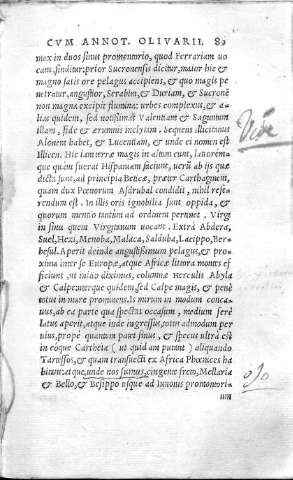 CVM ANNOT. OLIVARII. 89
mox in duos sinus promontorio, quod Ferrariam uo
cant, finditur: prior Sucronensis dicitur, maior hic &
magno satis ore pelagus accipiens, & quo magis pe
netratur, angustior, Serabim, & Duriam, & Sucronē
non magna excipit flumina: urbes complexus, & a-
lias quidem, sed notissimas Valentiam & Saguntum
illam, fide & ærumnis inclytam. Sequens Illicitanus
Alonem habet, & Lucentiam, & unde ei nomen est
Illicen. Hic iam terræ magis in altum eunt, latiorem-
que quàm fuerat Hispaniam faciunt, uerū ab ijs quæ
dicta sunt, ad principia Beticæ, præter Carthaginem,
quam dux Pœnorum Asdrubal condidit, nihil refe-
rendum est. In illis oris ignobilia sunt oppida, &
quorum mentio tantùm ad ordinem pertinet. Virgi
in sinu quem Virgitanum uocant. Extra Abdera,
Suel, Hexi, Menoba, Malaca, Salduba, Lacippo, Ber-
besul. Aperit deinde angustissimum pelagus, & pro-
xima inter se Europæ, atque Africæ litora montes ef
ficiunt, ut initio diximus, columnæ Herculis Abyla
& Calpe: uterque quidem, sed Calpe magis, & penè
totus in mare prominens. Is mirum in modum conca-
uus, ab ea parte qua spectat occasum, medium ferè
latus aperit, atque inde ingressus, totus admodum per
uius, propè quantum patet sinus, & specus ultrà est
in eoque Cartheia (ut quidam putant) aliquando
Tartessos, & quam transuecti ex Africa Phœnices ha
bitant: atque, unde nos sumus, cingente freto, Mellaria
& Bello, & Besippo usque ad Iunonis promontori
um